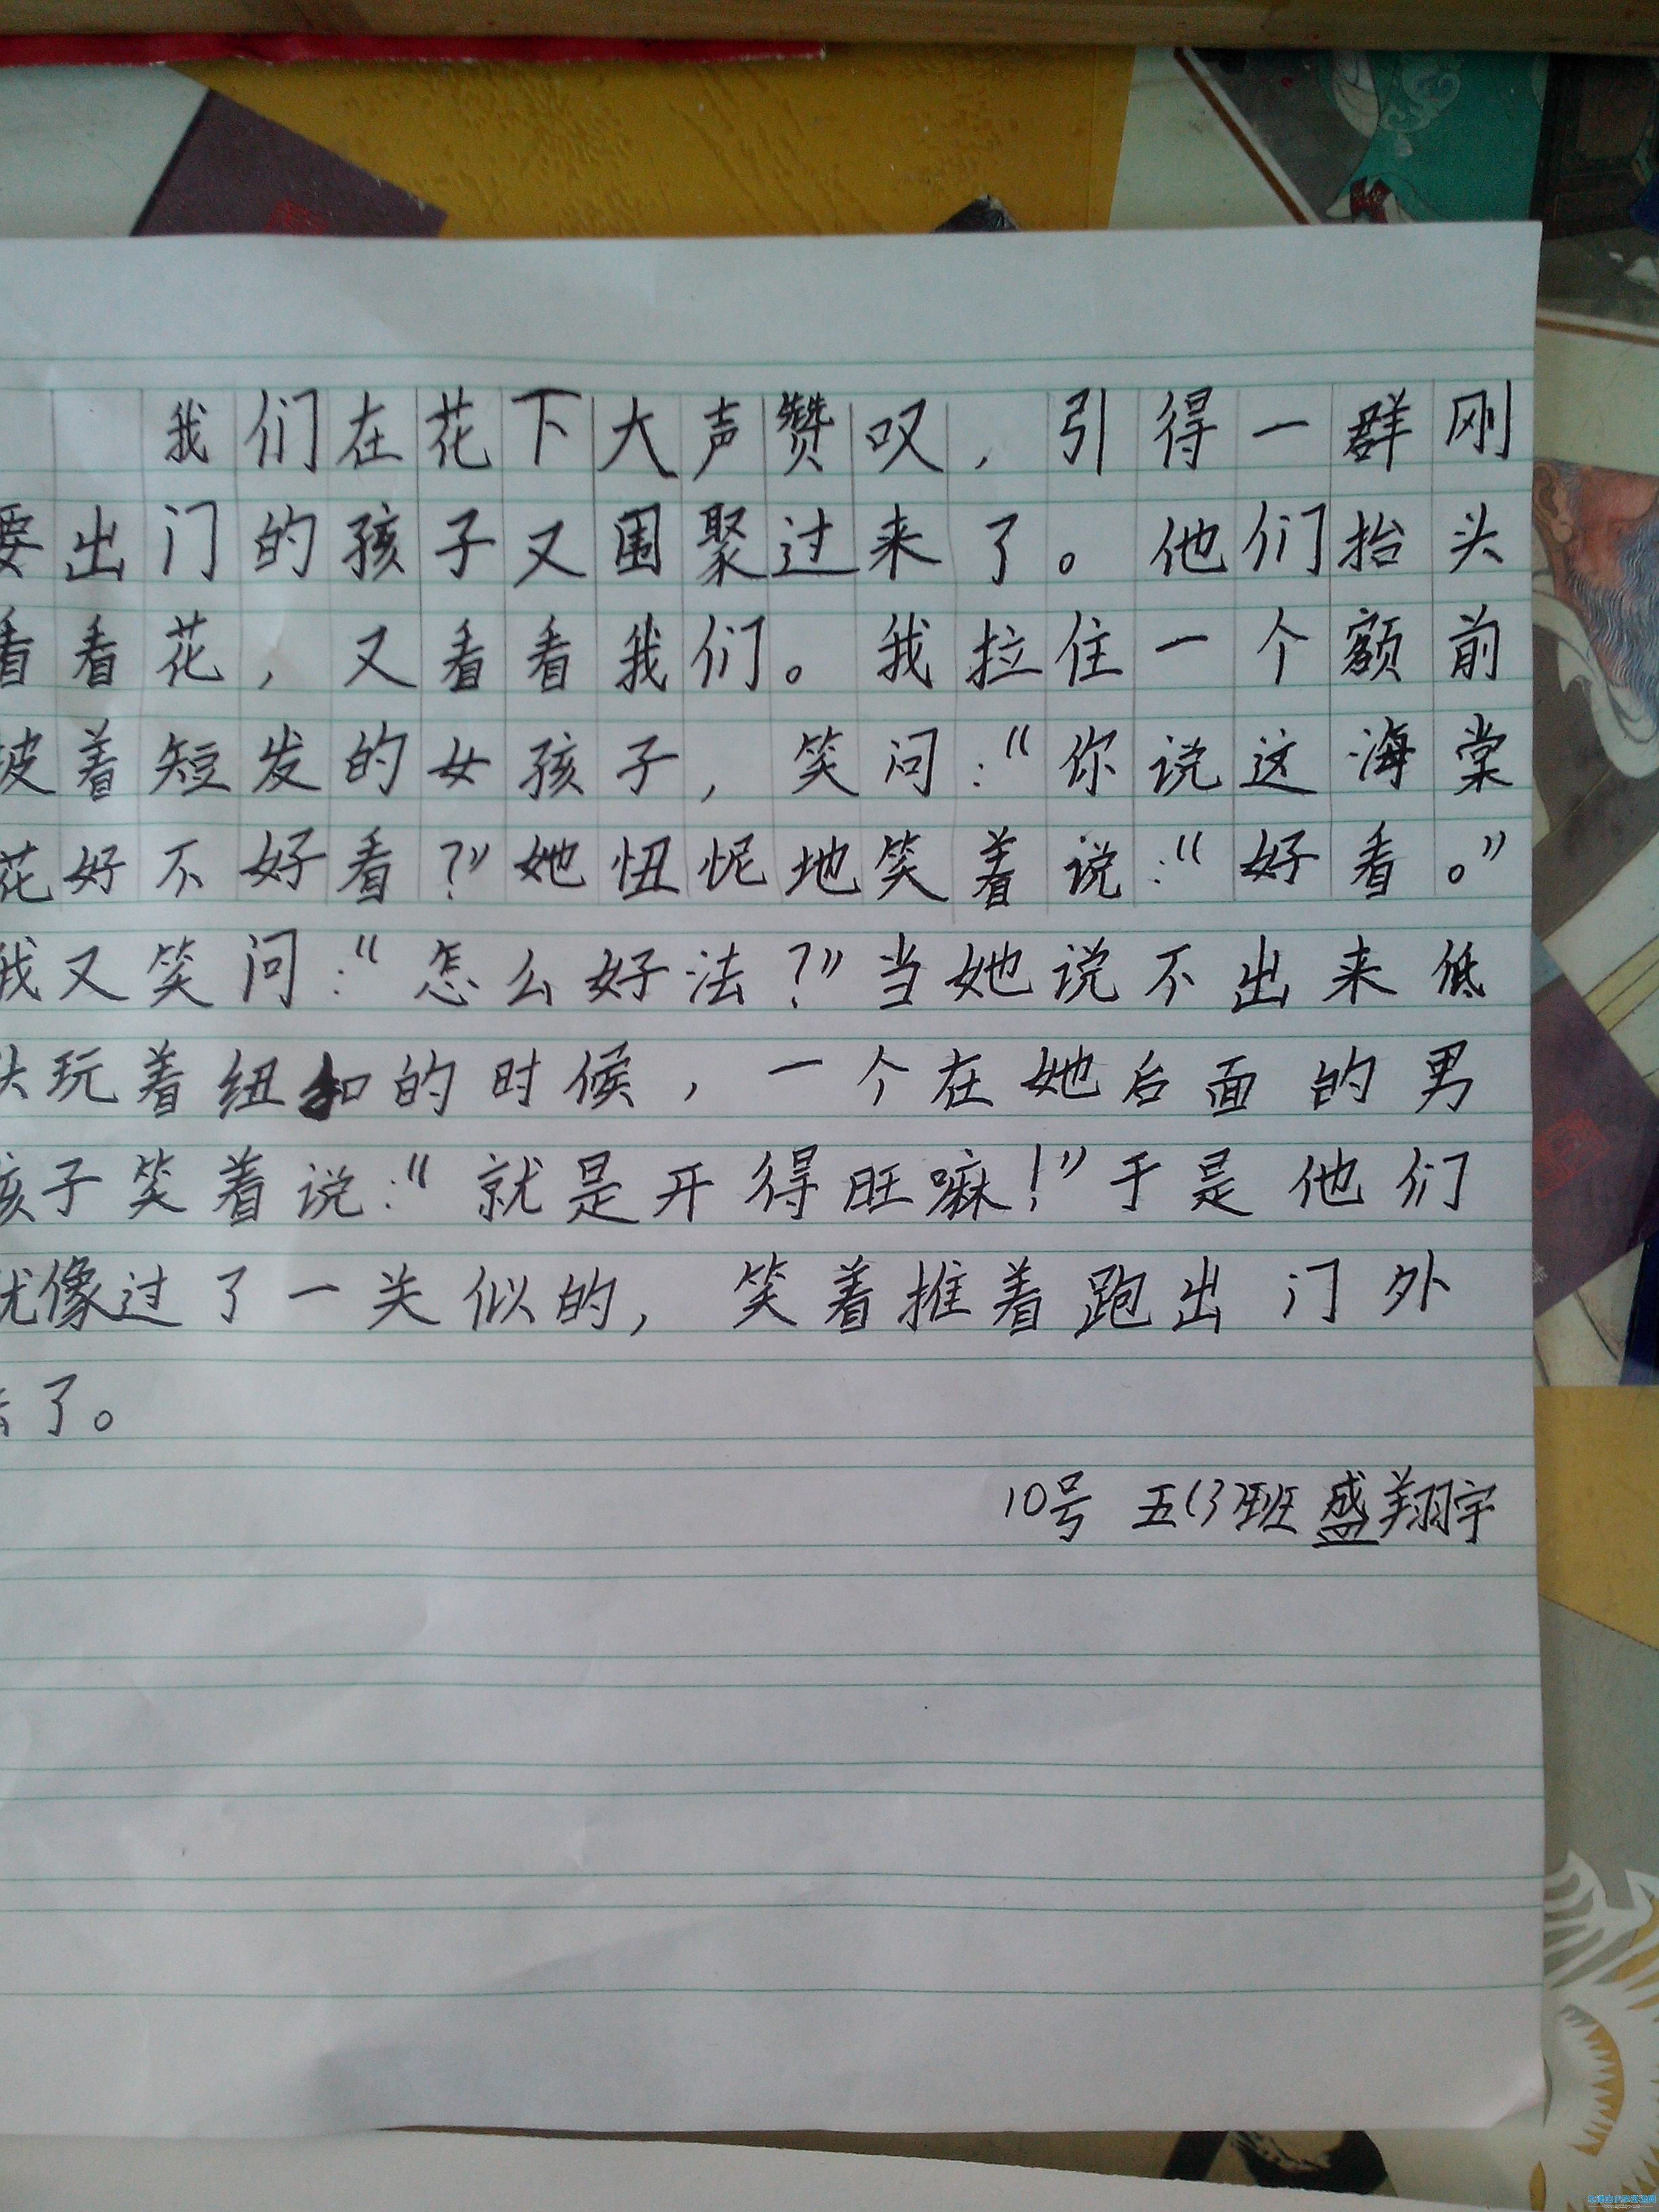 我们在花下大声赞叹，引得一群刚
要出门的孩子又围聚过来了。他们抬头
看看花，又看看我们。我拉住一个额前
披着短发的女孩子，笑问：“你说这海棠
花好不好看？”她忸怩地笑着说：“好看。”
我又笑问：“怎么好法？”当她说不出来低
头玩着纽扣的时候，一个在她后面的男
孩子笑着说：“就是开得旺嘛！”于是他们
就像过了一关似的，笑着推着跑出门外
去了。
10号 五(3)班 盛翔宇